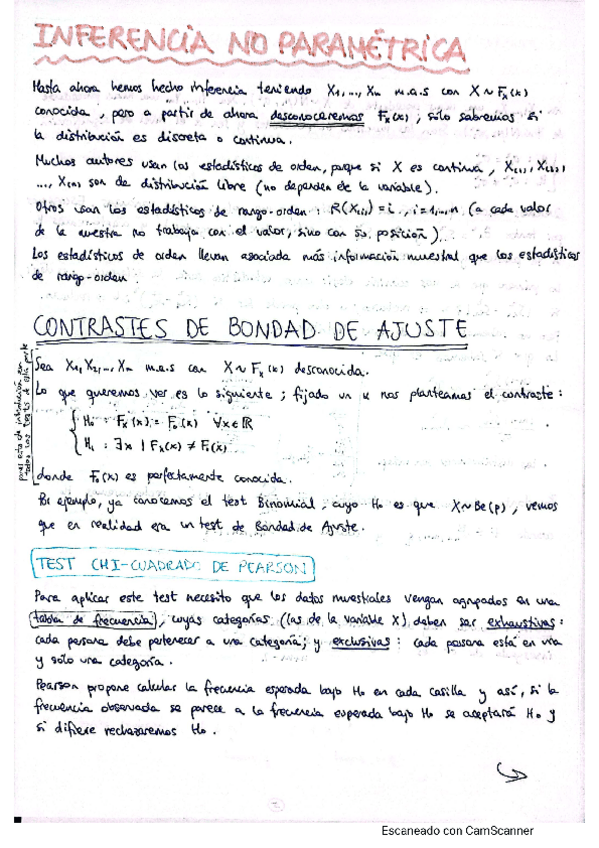 INFERENCIA NO PARAMÉTRICA
Hasta ahora hemos hecho inferencia teniendo X1, ..., Xn m.a.s con X ~ Fx(x)
conocida, pero a partir de ahora desconoceremos Fx(x); sólo sabremos si
la distribución es discreta o continua.
Muchos autores usan los estadísticos de orden, porque si X es continua, X(1), X(2),
..., X(n) son de distribución libre (no dependen de la variable).
Otros usan los estadísticos de rango-orden: R(X(i)) = i, i=1,...,n (a cada valor
de la muestra no trabajo con el valor, sino con su posición)
Los estadísticos de orden llevan asociada más información muestral que los estadísticos
de rango-orden.
CONTRASTES DE BONDAD DE AJUSTE
Sea X1, X2, ..., Xn m.a.s con X ~ Fx(x) desconocida.
Lo que queremos ver es lo siguiente; fijado un α nos planteamos el contraste:
H0: Fx(x) = F0(x) ∀x∈ℝ
H1: ∃x | Fx(x) ≠ F0(x)
donde F0(x) es perfectamente conocida.
Por ejemplo, ya conocemos el test Binomial, cuyo H0 es que X~Be(p), vemos
que en realidad era un test de Bondad de Ajuste.
TEST CHI-CUADRADO DE PEARSON
Para aplicar este test necesito que los datos muestrales vengan agrupados en una
tabla de frecuencia, cuyas categorías (las de la variable X) deben ser exhaustivas:
cada persona debe pertenecer a una categoría; y exclusivas: cada persona está en una
y sólo una categoría.
Pearson propone calcular la frecuencia esperada bajo H0 en cada casilla y así, si la
frecuencia observada se parece a la frecuencia esperada bajo H0 se aceptará H0 y
si difiere rechazaremos H0.
Escaneado con CamScanner